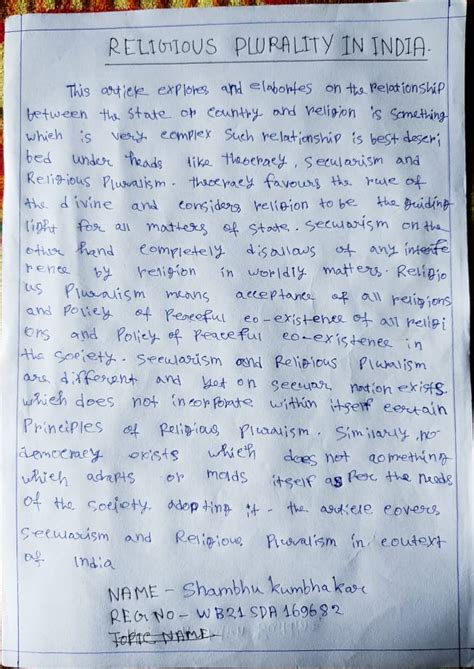 RELIGIOUS PLURALITY IN INDIA.
This article explores and elabortes on the relationship
between the state or country and religion is something
which is very complex such relationship is best descri
bed under heads like theocracy, secularism and
Religious Pluralism. theocracy favours the rule of
the divine and considers religion to be the guiding
light for all matters of state. secularism on the
other hand completely disallows of any interfe
rence by religion in worldly matters. Religio
us Pluralism means acceptance of all religions
and policy of Peaceful co-existence of all religi
ons and Policy of Peaceful co-existence in
the society. Secularism and Religious Pluralism
are different and yet on secuar nation exists.
which does not incorporate within itself certain
Principles of Religious pluralism. Similarly, no
democracy exists which does not something
which adapts or molds itself as Per the needs
of the society adopting it - the article covers
Secularism and Religious Pluralism in context
of India
NAME - Shambhu kumbhakar
REG NO - WB21SDA169682
TOPIC NAME -